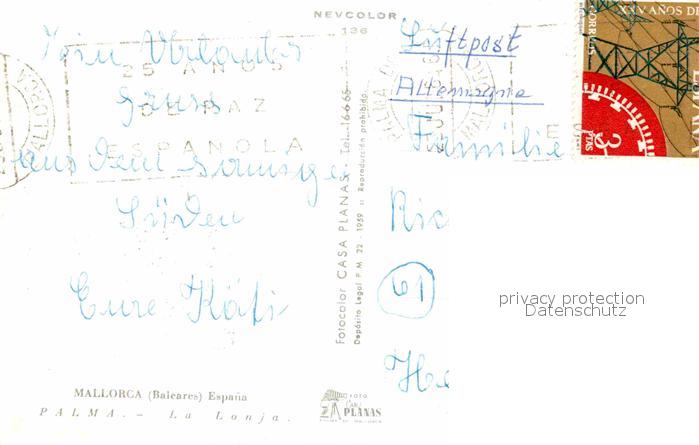 NEVCOLOR
136
25 AÑOS
DE PAZ
ESPAÑOLA
Urlaubs
Gruss
aus dem sonnigen
Süden
Eure Käti
MALLORCA (Baleares) España
PALMA. - La Lonja.
Fotocolor CASA PLANAS - Tel. 16-6-65
Depósito Legal P.M. 22 - 1959 :: Reproducción prohibida
FOTO
CASA
PLANAS
PALMA DE MALLORCA
Luftpost
Allemagne
Familie
Ric
61
He
CORREOS
XXV AÑOS DE
3
PTAS
privacy protection
Datenschutz